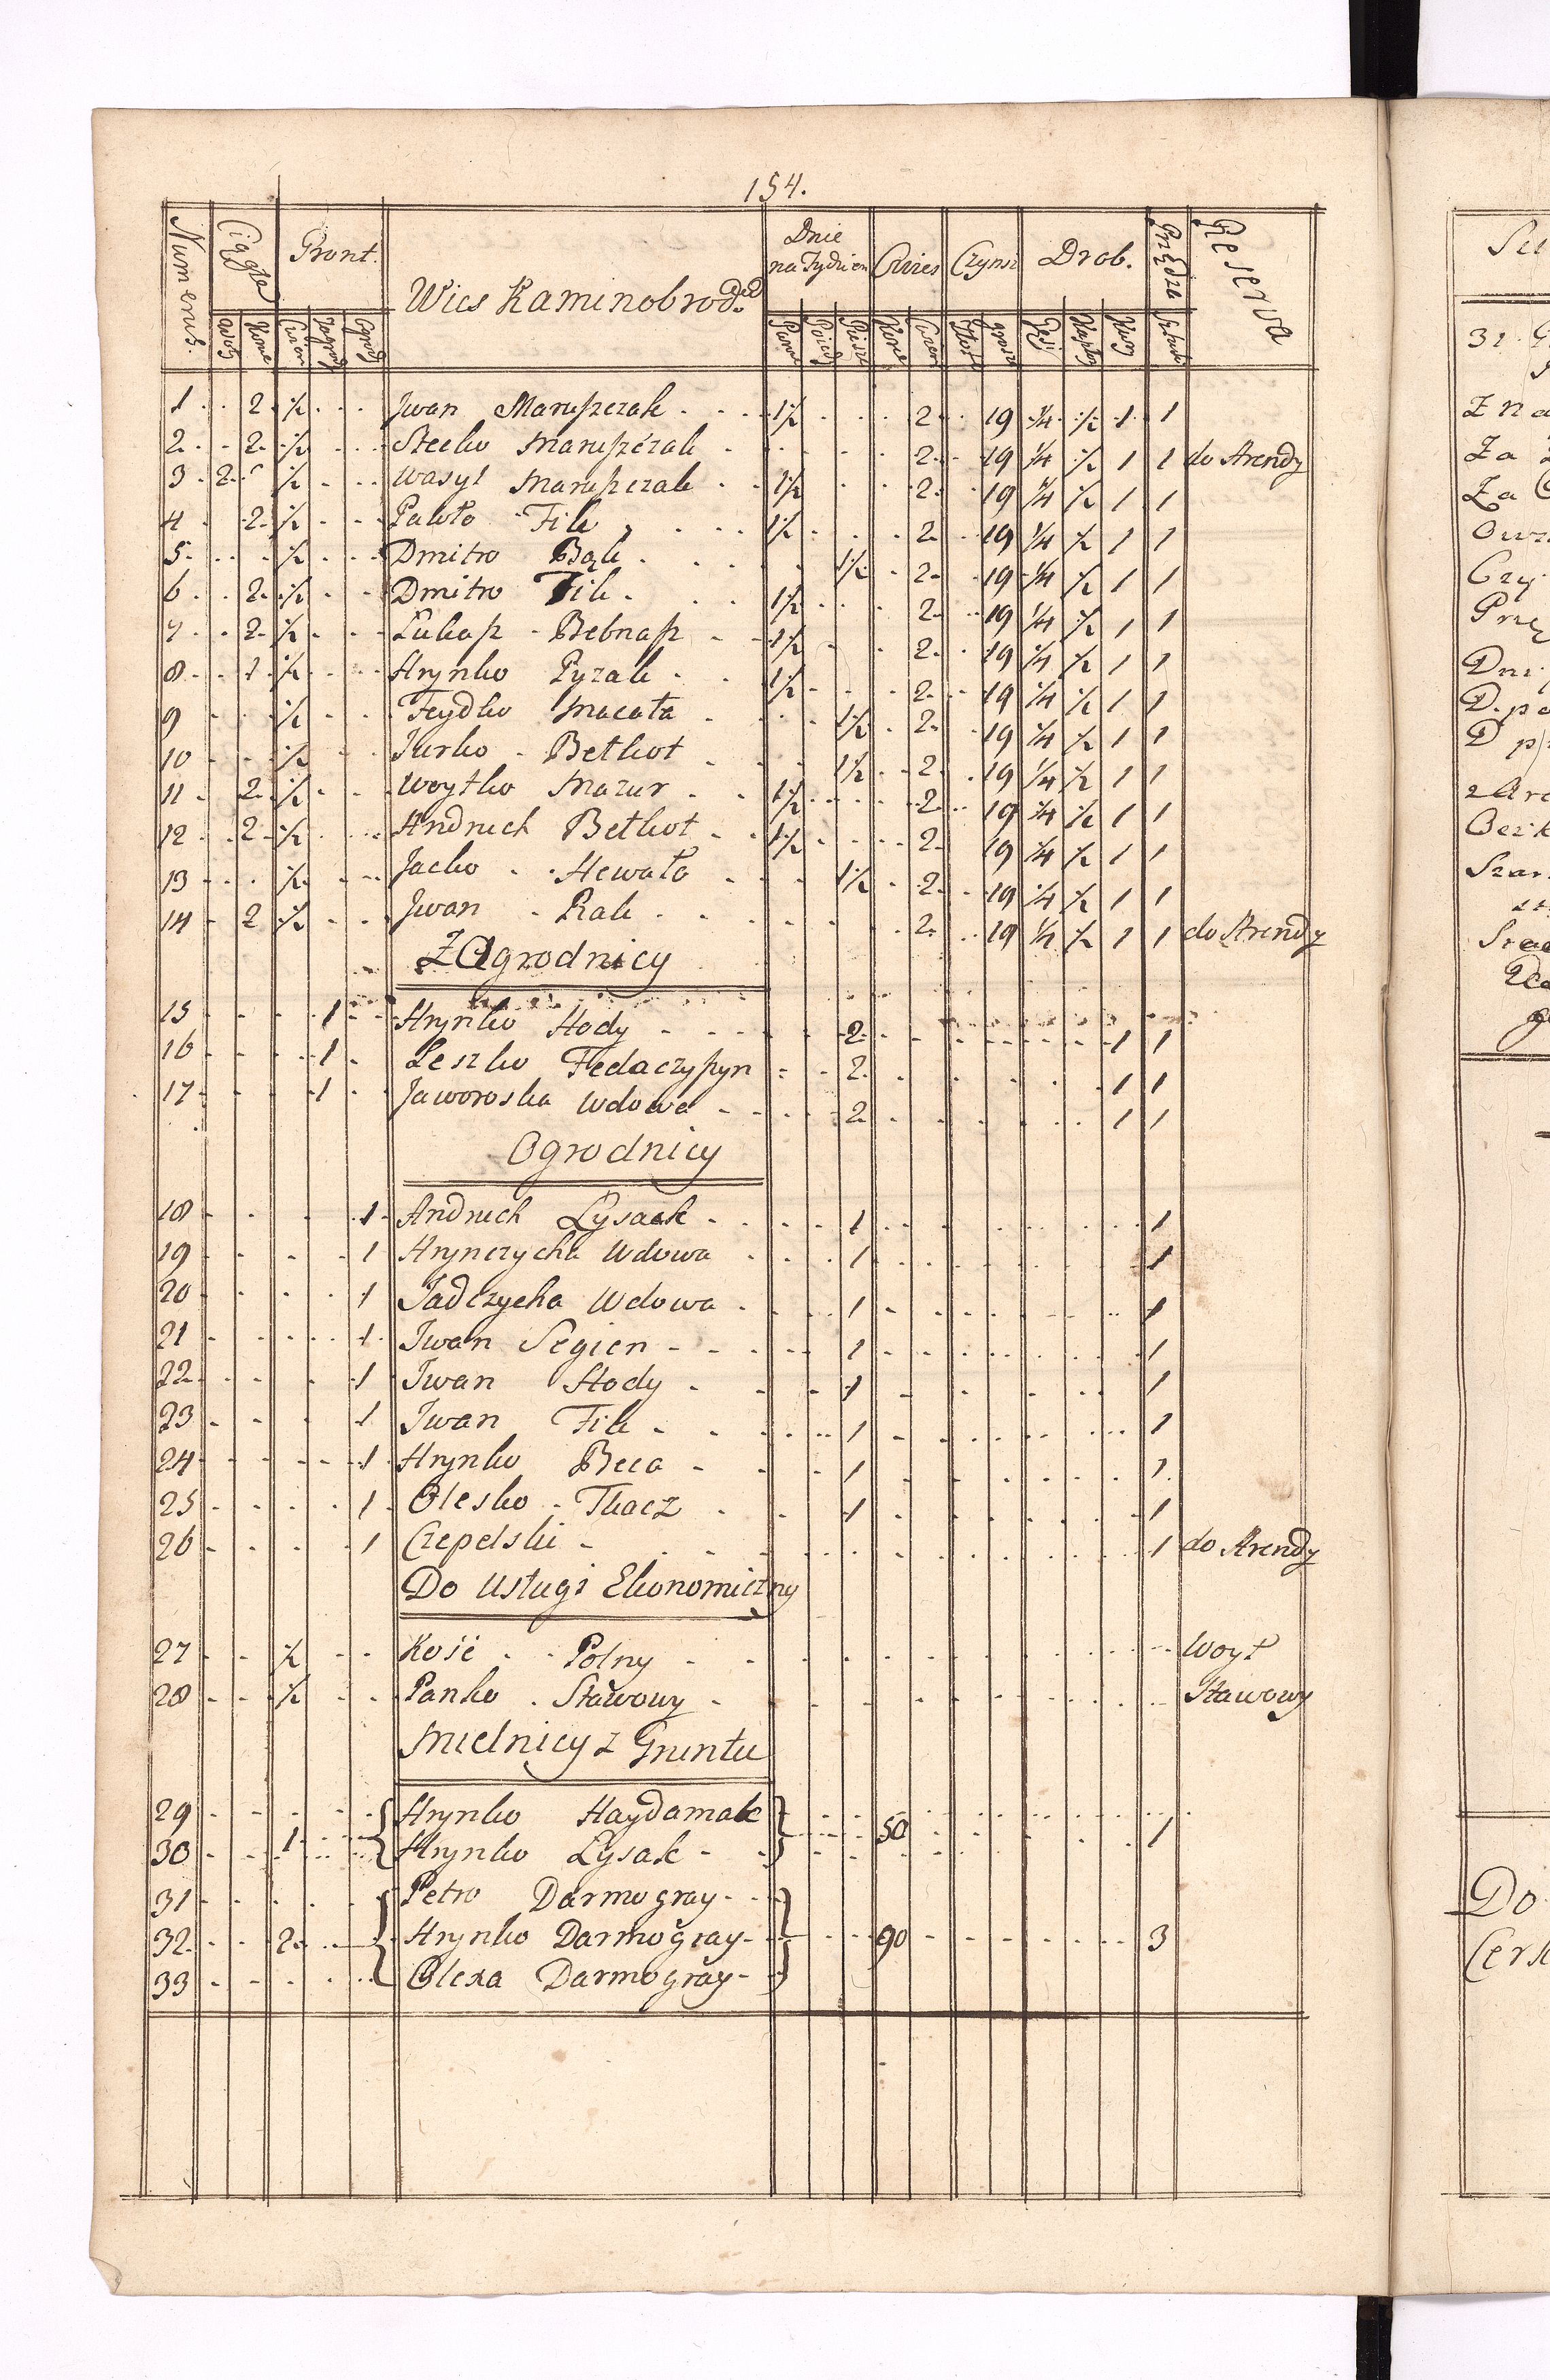 154.
Numerus. Ciągłe Gront. Wies Kaminobrod Dnie na Tydzien Owies Czynsz Drob. Przędza Reserva
Woły Konie Cwier Zagrod Ogrody Parne Poied Piesze Korce Cwier Złote grosze Gęsi Kapłony Kury Sztuk
1 2 ½ Jwan Maruszczak 1½ 2 19 ¼ ½ 1 1
2 2 ½ Stecko Maruszczak 2 19 ¼ ½ 1 1 do Arendy
3 2 ½ Wasyl Maruszczak 1½ 2 19 ¼ ½ 1 1
4 2 ½ Pawło Fik 1½ 2 19 ¼ ½ 1 1
5 ½ Dmitro Bąk 1½ 2 19 ¼ ½ 1 1
6 2 ½ Dmitro Fik 1½ 2 19 ¼ ½ 1 1
7 2 ½ Łukasz Bebnasz 1½ 2 19 ¼ ½ 1 1
8 1 ½ Hrynko Pyzak 1½ 2 19 ¼ ½ 1 1
9 ½ Feydko Macała 1½ 2 19 ¼ ½ 1 1
10 ½ Jurko Betkot 1½ 2 19 ¼ ½ 1 1
11 2 ½ Woytko Mazur 1½ 2 19 ¼ ½ 1 1
12 2 ½ Andruch Betkot 1½ 2 19 ¼ ½ 1 1
13 ½ Jacko Hewało 1½ 2 19 ¼ ½ 1 1
14 2 ½ Jwan Rak 2 19 ¼ ½ 1 1 do Arendy
ZAgrodnicy
15 1 Hrynko Hody 2 1 1
16 1 Leszko Fedaczyszyn 2 1 1
17 1 Jaworoska Wdowa 2 1 1
Ogrodnicy
18 1 Andruch Łysak 1 1
19 1 Hrynczycha Wdowa 1 1
20 1 Jadczycha Wdowa 1 1
21 1 Jwan Segien 1 1
22 1 Jwan Hody 1 1
23 1 Jwan Fik 1 1
24 1 Hrynko Beca 1 1
25 1 Olesko Tkacz 1 1
26 1 Czepelski 1 do Arendy
Do Usługi Ekonomiczny
27 ½ Kość Polny Woyt
28 ½ Panko Stawowy Stawowy
Mielnicy z Gruntu
29 Hrynko Haydamak
30 1 Hrynko Łysak 50 1
31 Petro Darmogray
32 2 Hrynko Darmogray 90 3
33 Olexa Darmogray